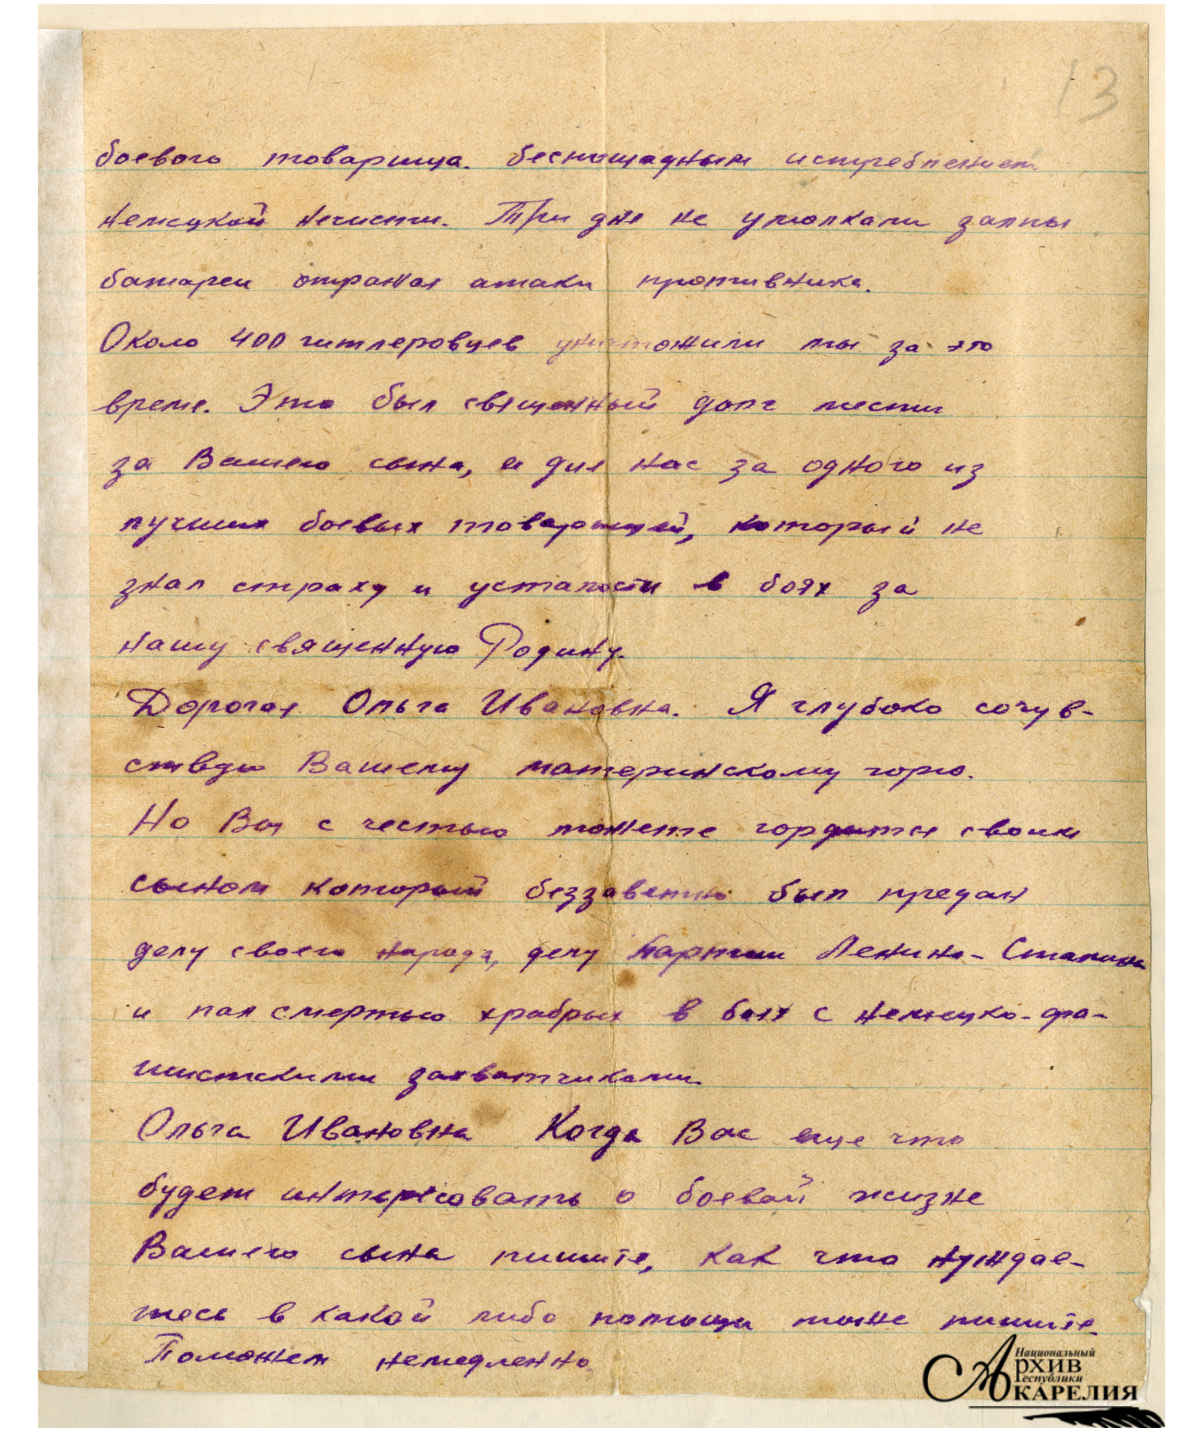 13
боевого товарища. беспощадным истреблением
немецкой нечисти. Три дне не умолкали залпы
батареи отражая атаки противника.
Около 400 гитлеровцев уничтожили мы за это
време. Это был священный долг мести
за Вашего сына, и для нас за одного из
лучших боевых товарищей, который не
знал страху и усталости в боях за
нашу священную Родину.
Дорогая Ольга Ивановна. Я глубоко сочув-
ствую Вашему материнскому горю.
Но Вы с честью можете гордится своим
сыном который беззаветно был предан
делу своего народа, делу Партии Ленина-Сталина
и пал смертью храбрых в боях с немецко-фа-
шисткими захватчиками.
Ольга Ивановна Когда Вас еще что
будет интересовать о боевой жизне
Вашего сына пишите, как что нуждае-
тесь в какой либо помощи тоже пишите
Поможем немедленно
Национальный
Архив
Республики
Карелия